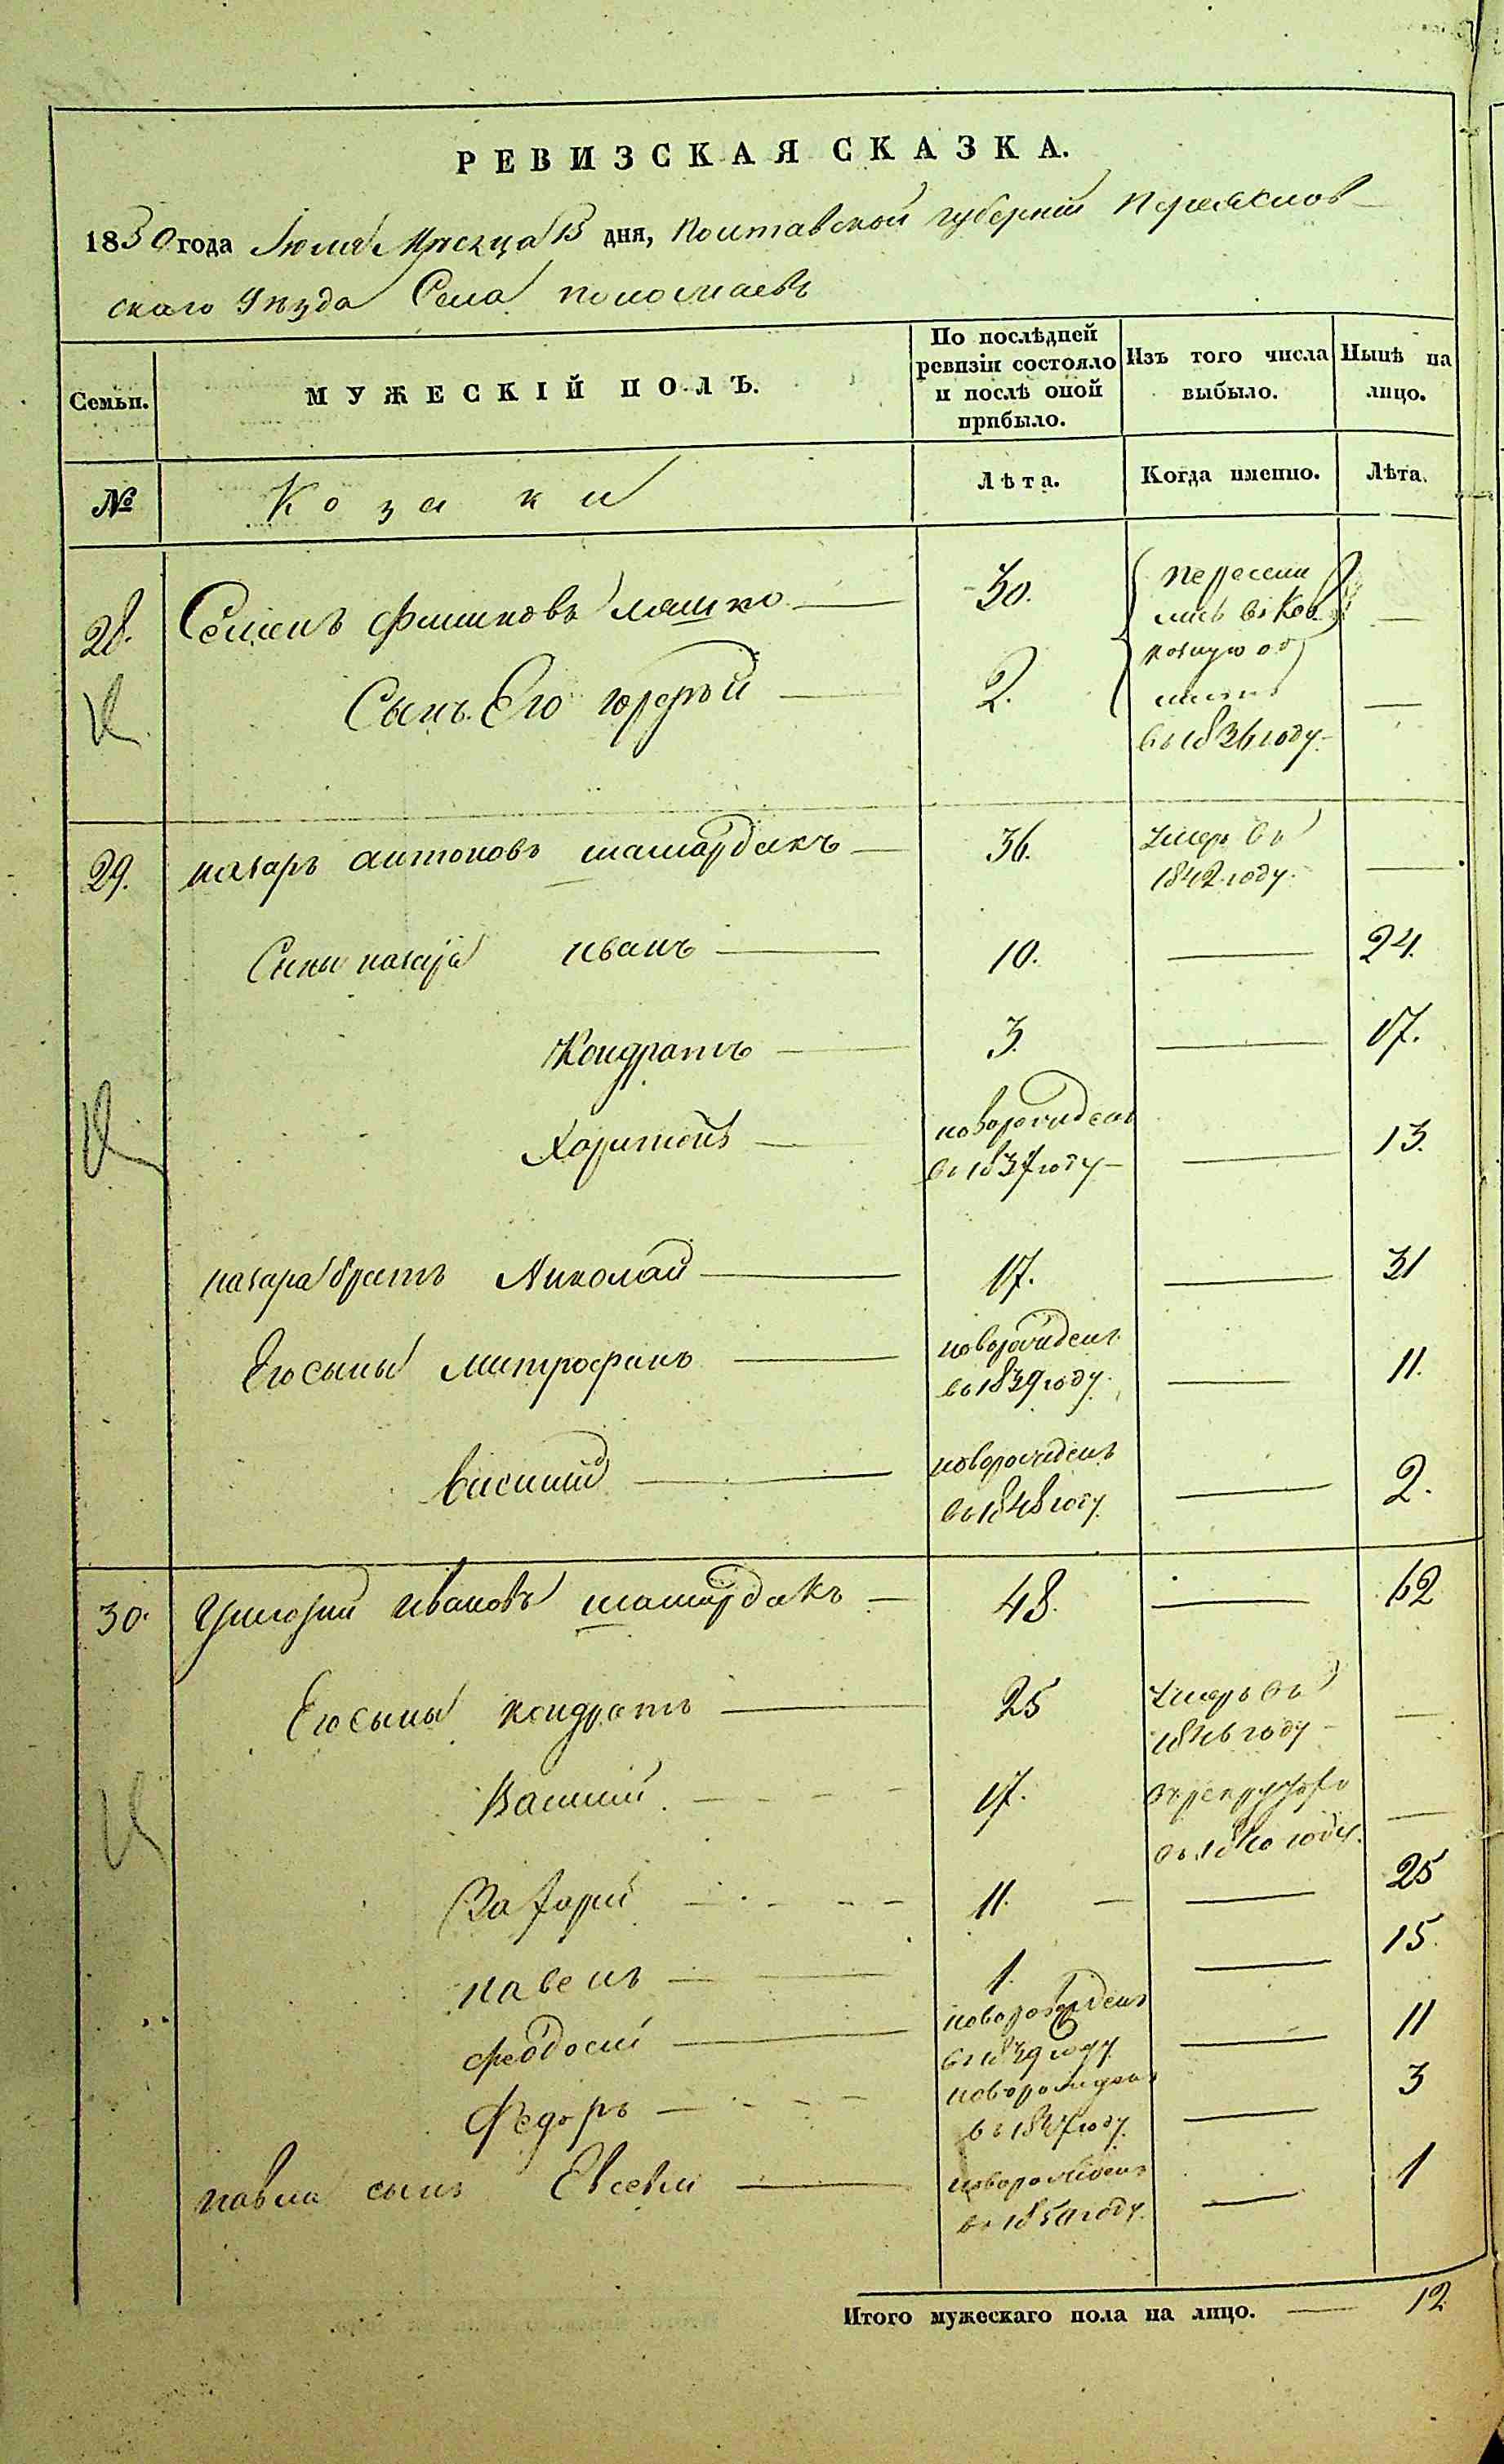 РЕВИЗСКАЯ СКАЗКА.
1850 года Июля Мѣсяца 15 дня, Полтавской губерніи Переяслов
скаго Уѣзда Села
Семьи.
МУЖЕСКІЙ ПОЛЪ.
По послѣдней ревизіи состояло и послѣ оной прибыло.
Изъ того числа выбыло.
Нынѣ на лицо.
№
Козаки
Лѣта.
Когда именно.
Лѣта.
28. Семенъ Филиповъ Ляшко 30. Пересели
лись въ
Сынъ Его 2.
въ 1836 году
29. назаръ антоновъ шамардакъ 36. умеръ въ
1842 году
Сыны назара иванъ 10. 24.
Кондратъ 3. 17.
Харитонъ новорожденъ 13.
въ 1837 году
назара братъ Николай 17. 31
Его сыны митрофанъ новорожденъ 11.
въ 1839 году
василий новорожденъ 2.
въ 1848 году
30. Григорий ивановъ шамардакъ 48. 62
Его сыны кондратъ 25 умеръ въ
1846 году
Василий 17.
въ 1840 году
Захарий 11. 25
павелъ 1. 15.
феодосий новорожденъ 11
въ 1839 году
Федоръ новорожденъ 3
въ 1847 году
павла сынъ Евсевий новорожденъ 1
въ 1850 году
Итого мужескаго пола на лицо. 12